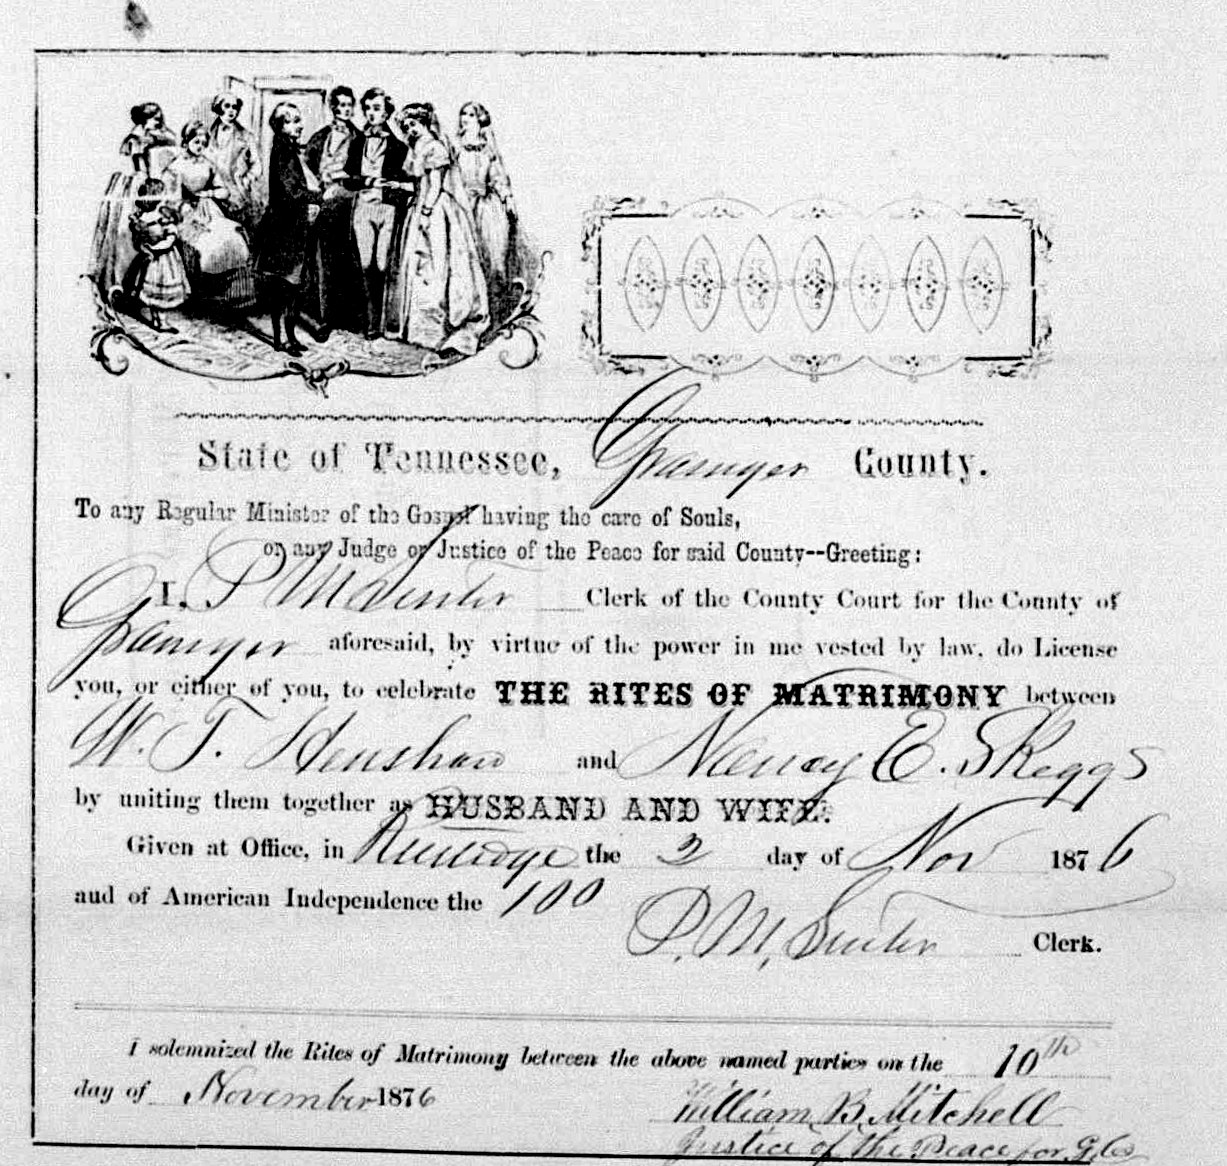 State of Tennessee, Grainger County.
To any Regular Minister of the Gospel having the care of Souls,
or any Judge or Justice of the Peace for said County--Greeting:
I, P M Senter Clerk of the County Court for the County of
Grainger aforesaid, by virtue of the power in me vested by law, do License
you, or either of you, to celebrate THE RITES OF MATRIMONY between
W. T. Henshaw and Nancy E. Skeggs
by uniting them together as HUSBAND AND WIFE.
Given at Office, in Rutledge the 2 day of Nov 1876
and of American Independence the 100
P. M. Senter Clerk.
I solemnized the Rites of Matrimony between the above named parties on the 10th
day of November 1876
William B. Mitchell
Justice of the Peace for G. Co